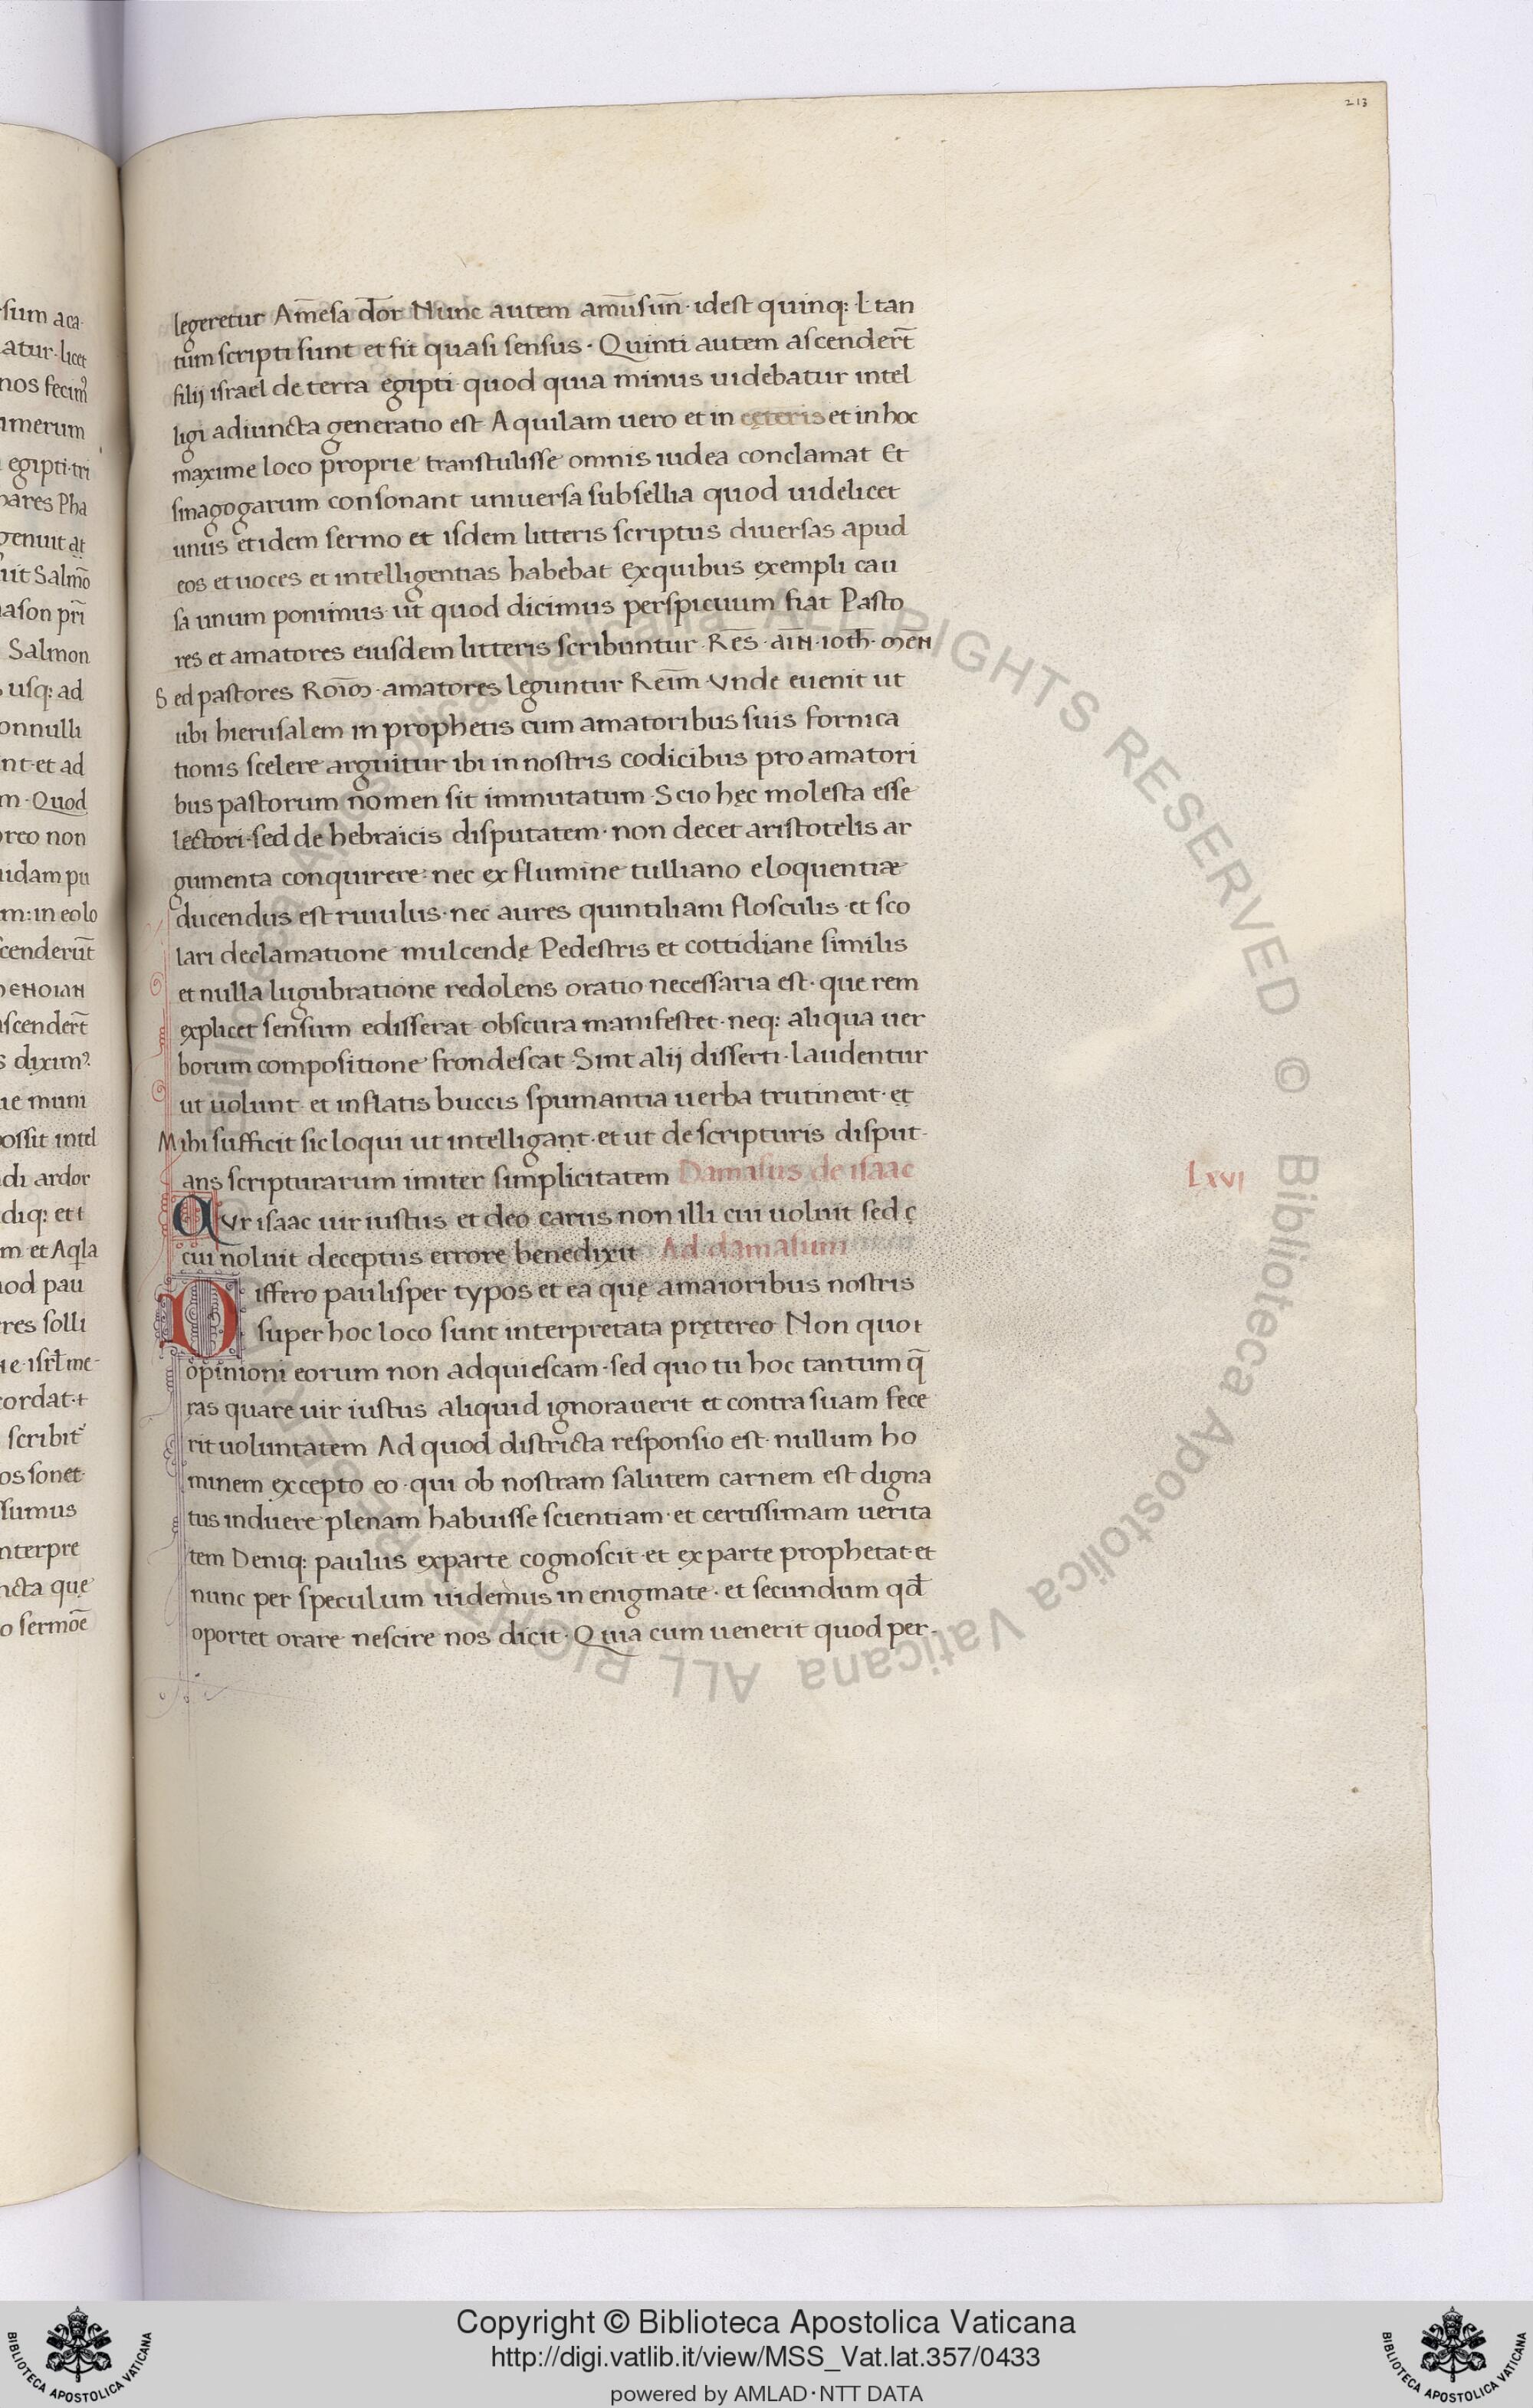 213
legeretur Am̅esa d̅or Nunc autem amu̅sun̅· idest quinq: L tan
tum scripti sunt et fit quasi sensus · Quinti autem ascendert̅
filij israel de terra egipti· quod quia minus uidebatur intel
ligi adiuncta generatio est Aquilam uero et in cęteris et in hoc
maxime loco proprie transtulisse omnis iudea conclamat Et
sinagogarum consonant uniuersa subsellia quod uidelicet
unus et idem sermo et isdem litteris scriptus diuersas apud
eos et uoces et intelligentias habebat Exquibus exempli cau
sa unum ponimus ut quod dicimus perspicuum fiat Pasto
res et amatores eiusdem litteris scribuntur · Re̅s · ai̅n · ioth̅ · me̅n
Sed pastores Roi̅m · amatores leguntur Rei̅m· Vnde euenit ut
ubi hierusalem in prophetis cum amatoribus suis fornica
tionis scelere arguitur ibi in nostris codicibus pro amatori
bus pastorum nomen sit immutatum · Scio hęc molesta esse
lectori· sed de hebraicis disputatem · non decet aristotelis ar
gumenta conquirere· nec ex flumine tulliano eloquentiæ
ducendus est riuulus · nec aures quintiliani flosculis et sco
lari declamatione mulcendę Pedestris et cottidiane similis
et nulla lugubratione redolens oratio necessaria est· que rem
explicet sensum edisserat· obscura manifestet· neq: aliqua uer
borum compositione frondescat · Sint alij disserti · laudentur
ut uolunt· et inflatis buccis spumantia uerba trutinent · et
Mihi sufficit sic loqui ut intelligant · et ut de scripturis disput-
ans scripturarum imiter simplicitatem Damasus de isaac
LXVI
QVr isaac uir iustus et deo carus non illi cui uoluit sed
cui noluit deceptus errore benedixit Ad damasum
Differo paulisper typos et ea quę amaioribus nostris
super hoc loco sunt interpretata prętereo Non quot
opinioni eorum non adquiescam · sed quo tu hoc tantum q̅
ras quare uir iustus aliquid ignorauerit et contra suam fece
rit uoluntatem Ad quod districta responsio est · nullum ho
minem excepto eo · qui ob nostram salutem carnem est digna
tus induere plenam habuisse scientiam · et certissimam uerita
tem Deniq: paulus exparte cognoscit · et ex parte prophetat· et
nunc per speculum uidemus in enigmate · et secundum qd̅
oportet orare nescire nos dicit · Quia cum uenerit quod per-
Copyright © Biblioteca Apostolica Vaticana
http://digi.vatlib.it/view/MSS_Vat.lat.357/0433
powered by AMLAD · NTT DATA